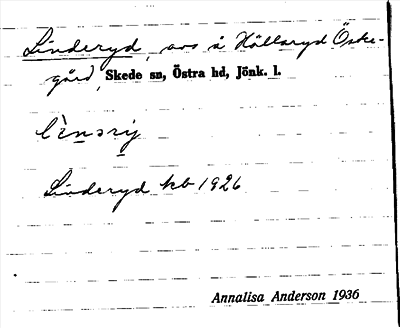 Linderyd, avs å Hållaryd Öske-
gård, Skede sn, Östra hd, Jönk. l.
Linderyd kb 1926
Annalisa Anderson 1936